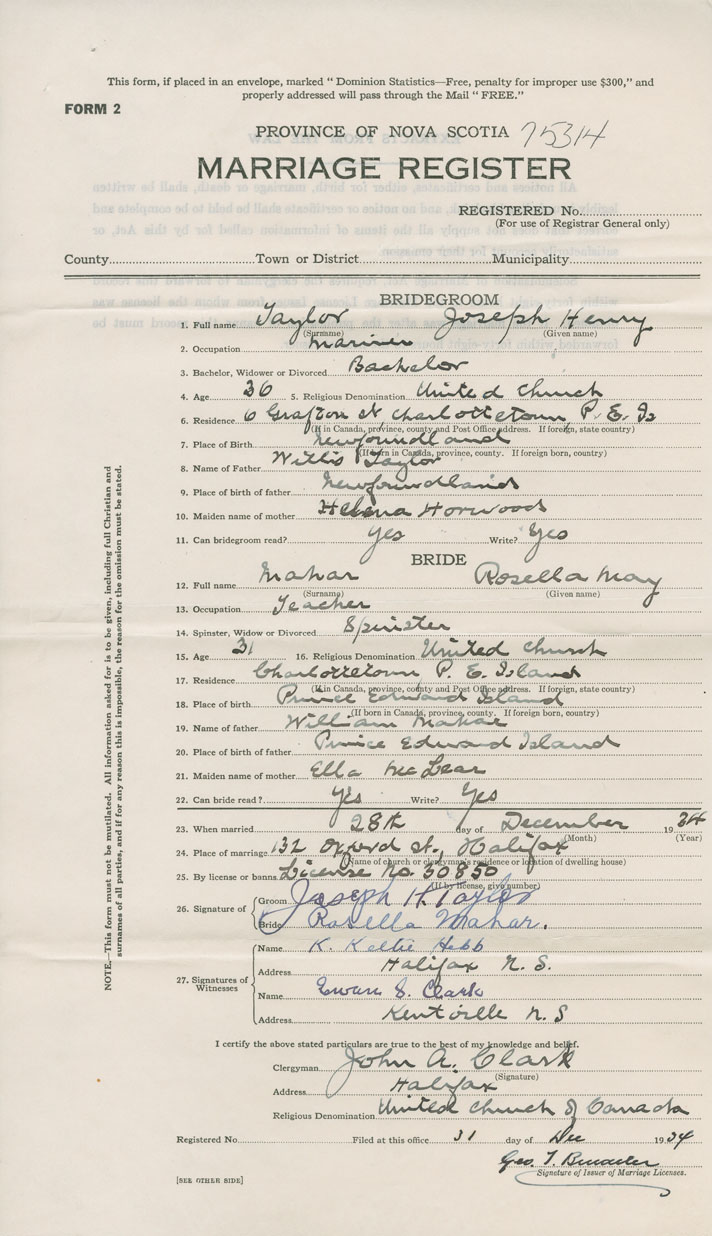 This form, if placed in an envelope, marked " Dominion Statistics—Free, penalty for improper use $300," and
properly addressed will pass through the Mail " FREE."
FORM 2
PROVINCE OF NOVA SCOTIA 75314
MARRIAGE REGISTER
REGISTERED No.
(For use of Registrar General only)
County Town or District Municipality
BRIDEGROOM
1. Full name Taylor Joseph Henry
(Surname) (Given name)
2. Occupation Mariner
3. Bachelor, Widower or Divorced Bachelor
4. Age 36 5. Religious Denomination United Church
6. Residence 6 Grafton st Charlottetown P. E. Is
(If in Canada, province, county and Post Office address. If foreign, state country)
7. Place of Birth Newfoundland
(If born in Canada, province, county. If foreign born, country)
8. Name of Father Willis Taylor
9. Place of birth of father Newfoundland
10. Maiden name of mother Helena Horwood
11. Can bridegroom read? Yes Write? Yes
BRIDE
12. Full name Mahar Rosella May
(Surname) (Given name)
13. Occupation Teacher
14. Spinster, Widow or Divorced Spinster
15. Age 31 16. Religious Denomination United Church
17. Residence Charlottetown P. E. Island
(If in Canada, province, county and Post Office address. If foreign, state country)
18. Place of birth Prince Edward Island
(If born in Canada, province, county. If foreign born, country)
19. Name of father William Mahar
20. Place of birth of father Prince Edward Island
21. Maiden name of mother Ella McLear
22. Can bride read? Yes Write? Yes
23. When married 28th day of December 1934
(Month) (Year)
24. Place of marriage 132 Oxford st., Halifax
(Name of church or clergyman's residence or location of dwelling house)
25. By license or banns License No. 30850
(If by license, give number)
26. Signature of
Groom Joseph H Taylor
Bride Rosella Mahar.
27. Signatures of Witnesses
Name K. Keltie Hebb
Address Halifax N. S.
Name Ewan S. Clark
Address Kentville N. S
I certify the above stated particulars are true to the best of my knowledge and belief.
Clergyman John A. Clark
(Signature)
Address Halifax
Religious Denomination United Church of Canada
Registered No. Filed at this office 31 day of Dec 1934
Geo. T.
Signature of Issuer of Marriage Licenses.
[SEE OTHER SIDE]
NOTE.—This form must not be mutilated. All information asked for is to be given, including full Christian and
surnames of all parties, and if for any reason this is impossible, the reason for the omission must be stated.